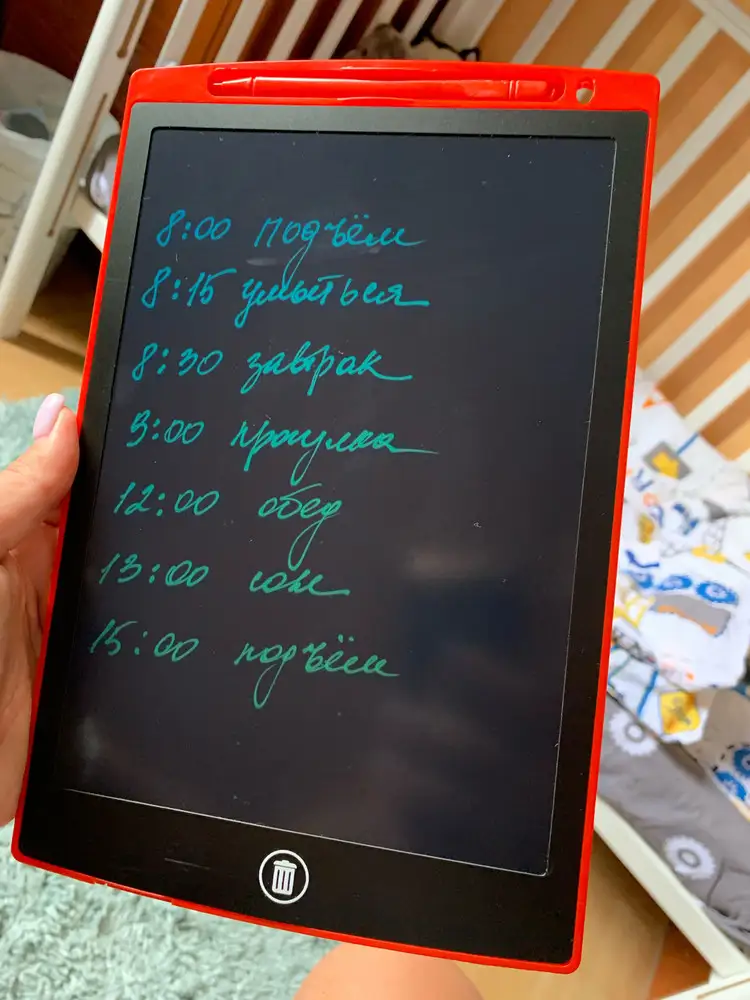 8:00 подъём
8:15 умыться
8:30 завтрак
9:00 прогулка
12:00 обед
13:00 сон
15:00 подъём